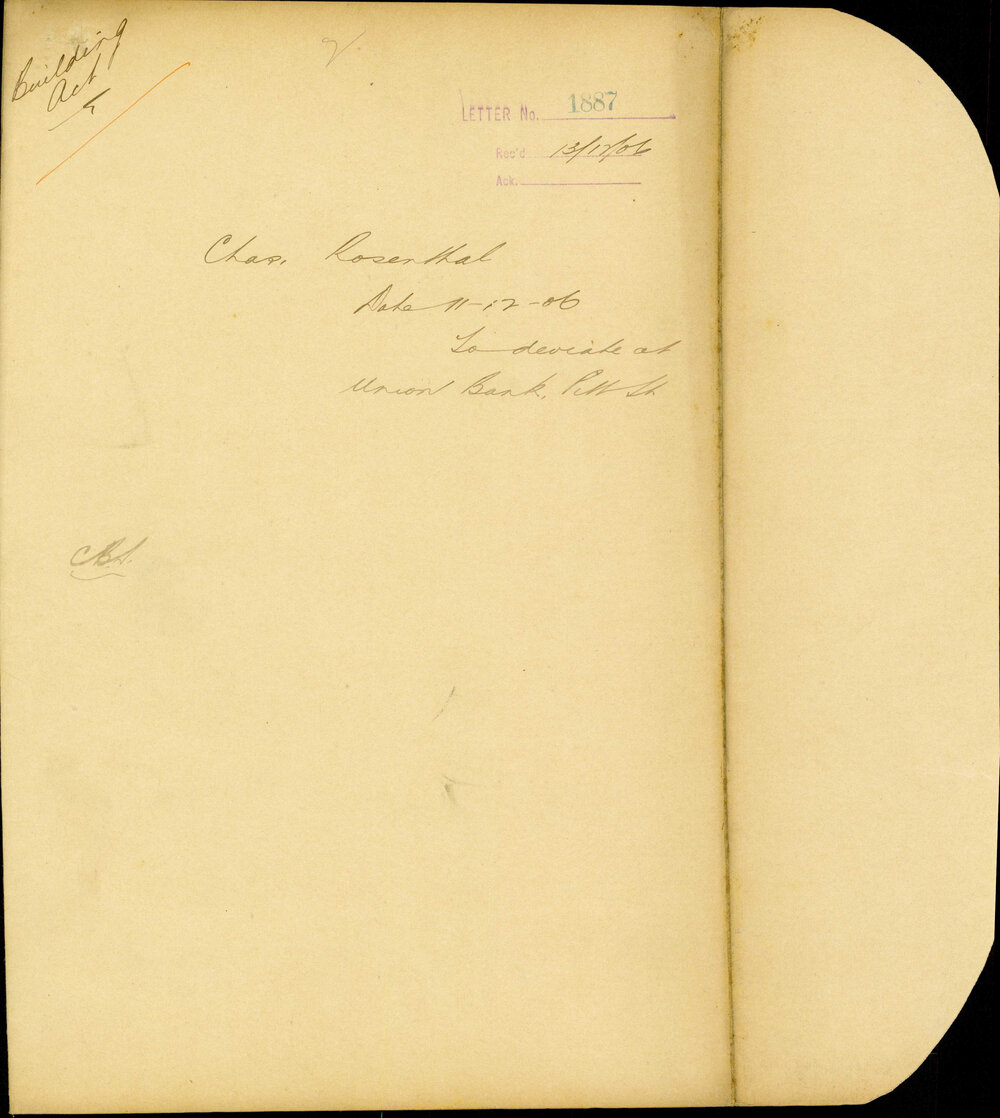 Building
Act
LETTER No. 1887
Rec'd 13/12/06
Ack.
Chas. Rosenthal
Date 11-12-06
To deviate at
Union Bank, Pitt St